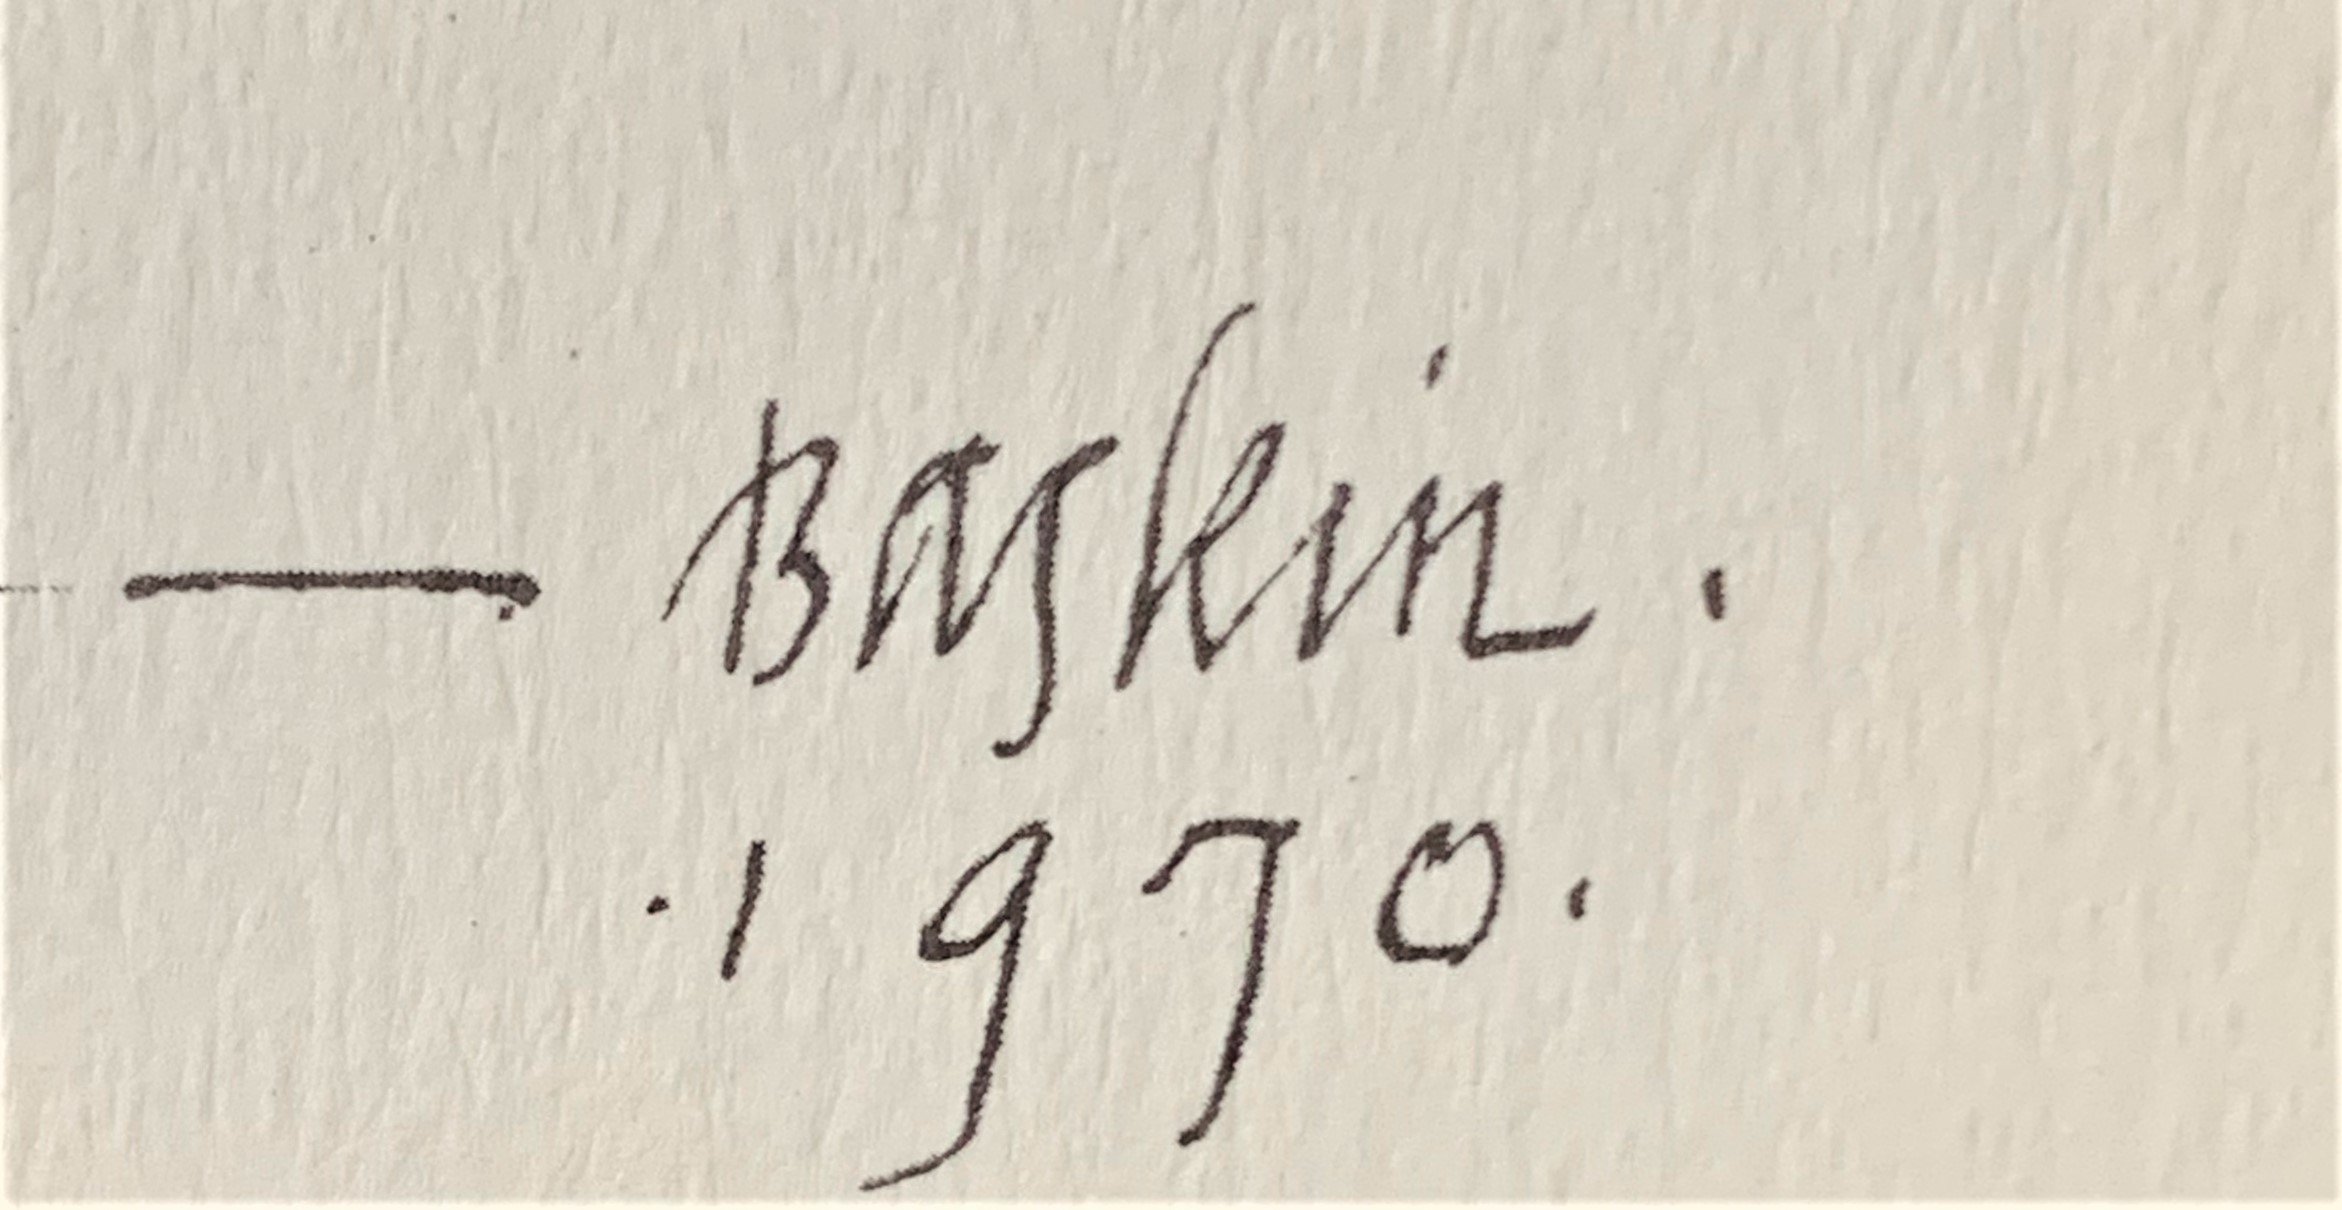 — Baskin .
. 1970 .